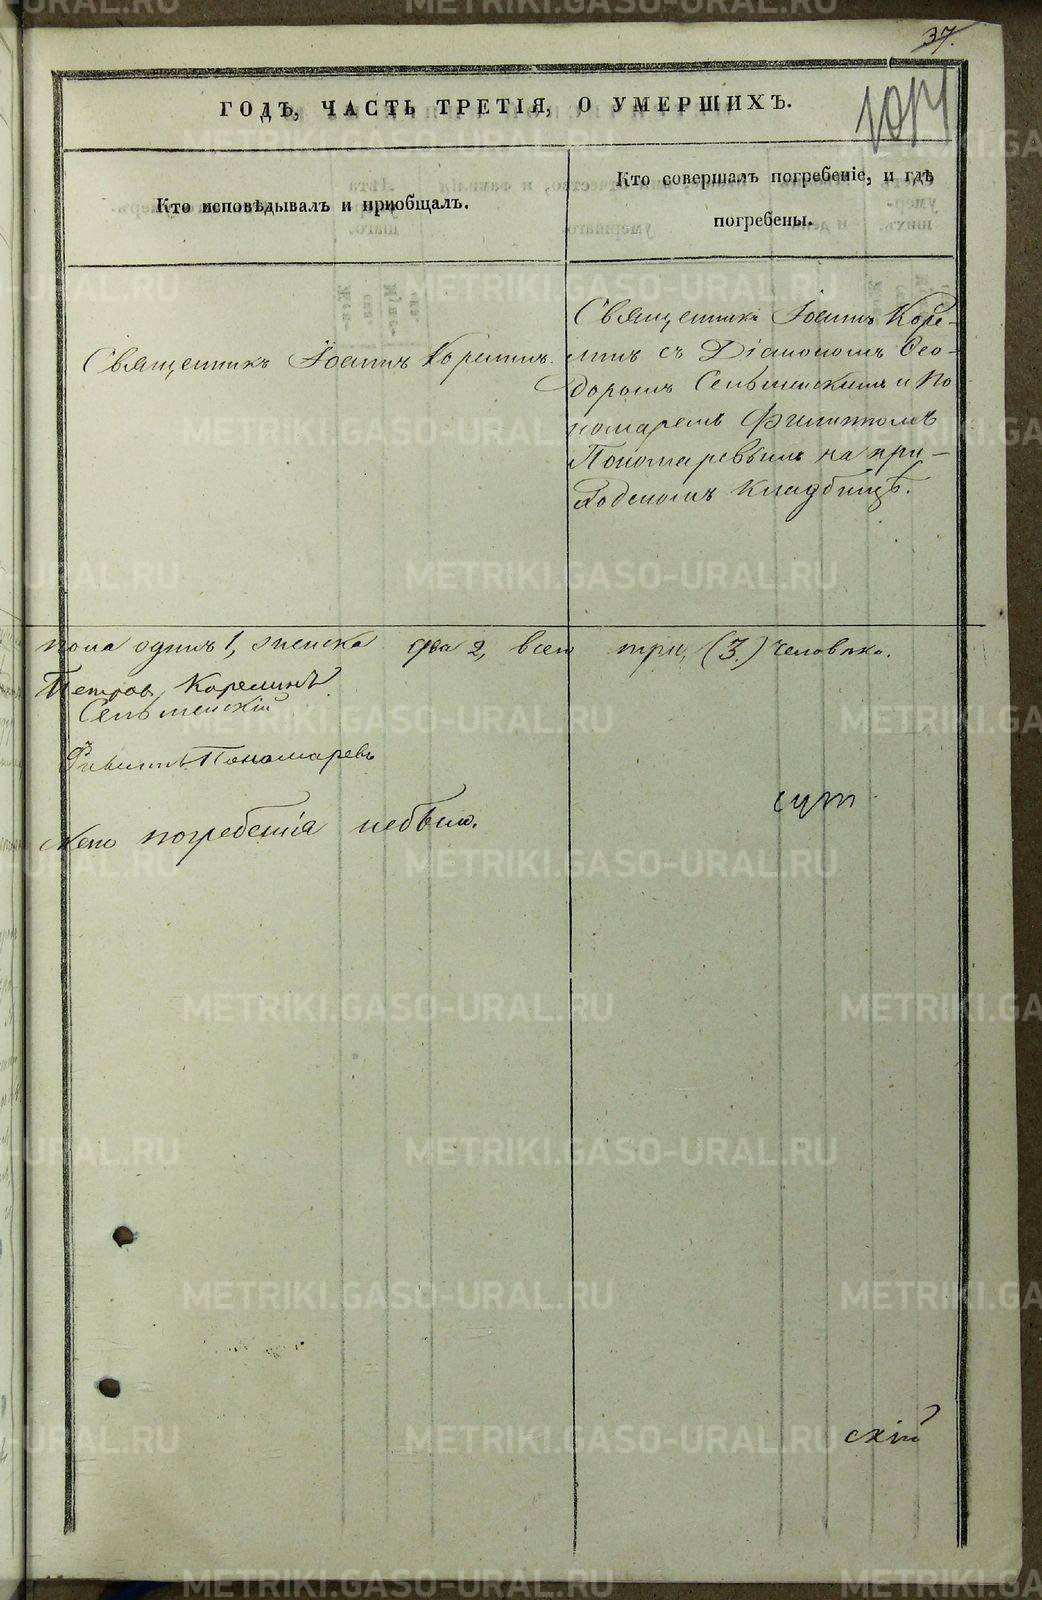 37.
1014
ГОДЪ, ЧАСТЬ ТРЕТІЯ, О УМЕРШИХЪ.
Кто исповѣдывалъ и пріобщалъ.
Кто совершалъ погребеніе, и гдѣ
погребены.
Священникъ Іоаннъ Корелинъ.
Священникъ Іоаннъ Коре-
линъ съ Діакономъ Ѳео-
доромъ Сельменскимъ и По
номаремъ Филиппомъ
Пономаревымъ на при-
ходскомъ кладбищѣ.
пола одинъ 1, женска два 2, всего три, (3.) человѣка.
Петровъ Корелинъ
Сельменскій
Филиппъ Пономаревъ
погребенія небыло.
сут
скій
METRIKI.GASO-URAL.RU